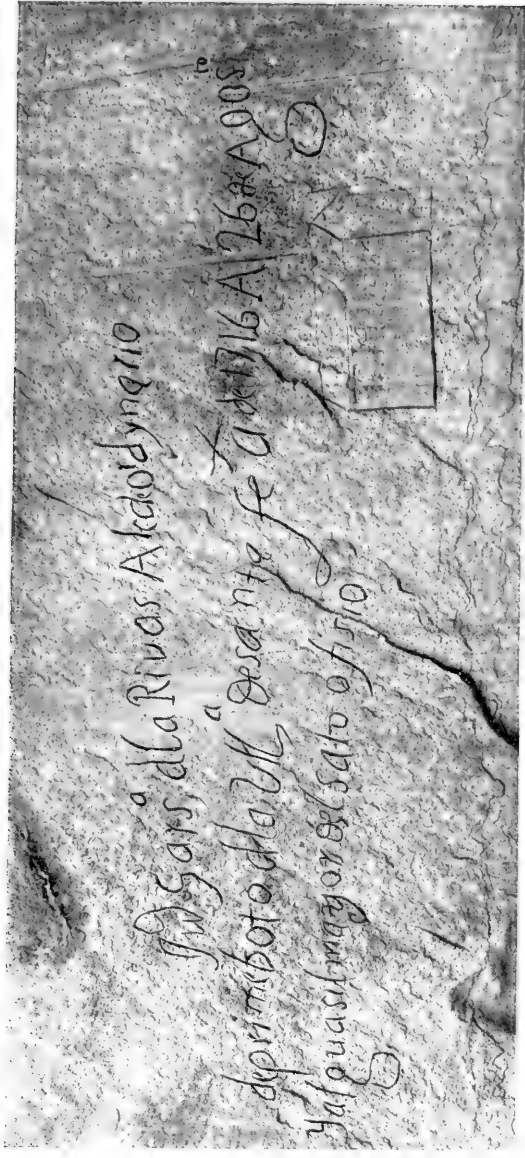 Juº Garsª dLa Rivas Akdordynario
dyprimeboto dLa Villª Desanta fe Añod 1716 A 26 de AGOSe
yalguasilmayor del sato ofisio